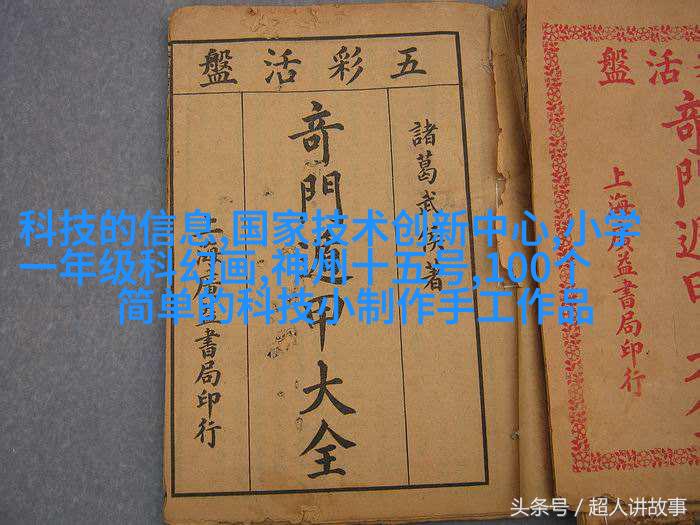 五彩活盤
諸葛武侯著
竒門遁甲大全
上海廣益書局印行
活盤
竒門遁甲
上海廣益書局印行
科技的信息,国家技术创新中心,小学
一年级科幻画,神州十五号,100个
简单的科技小制作手工作品
头条号 / 超人讲故事